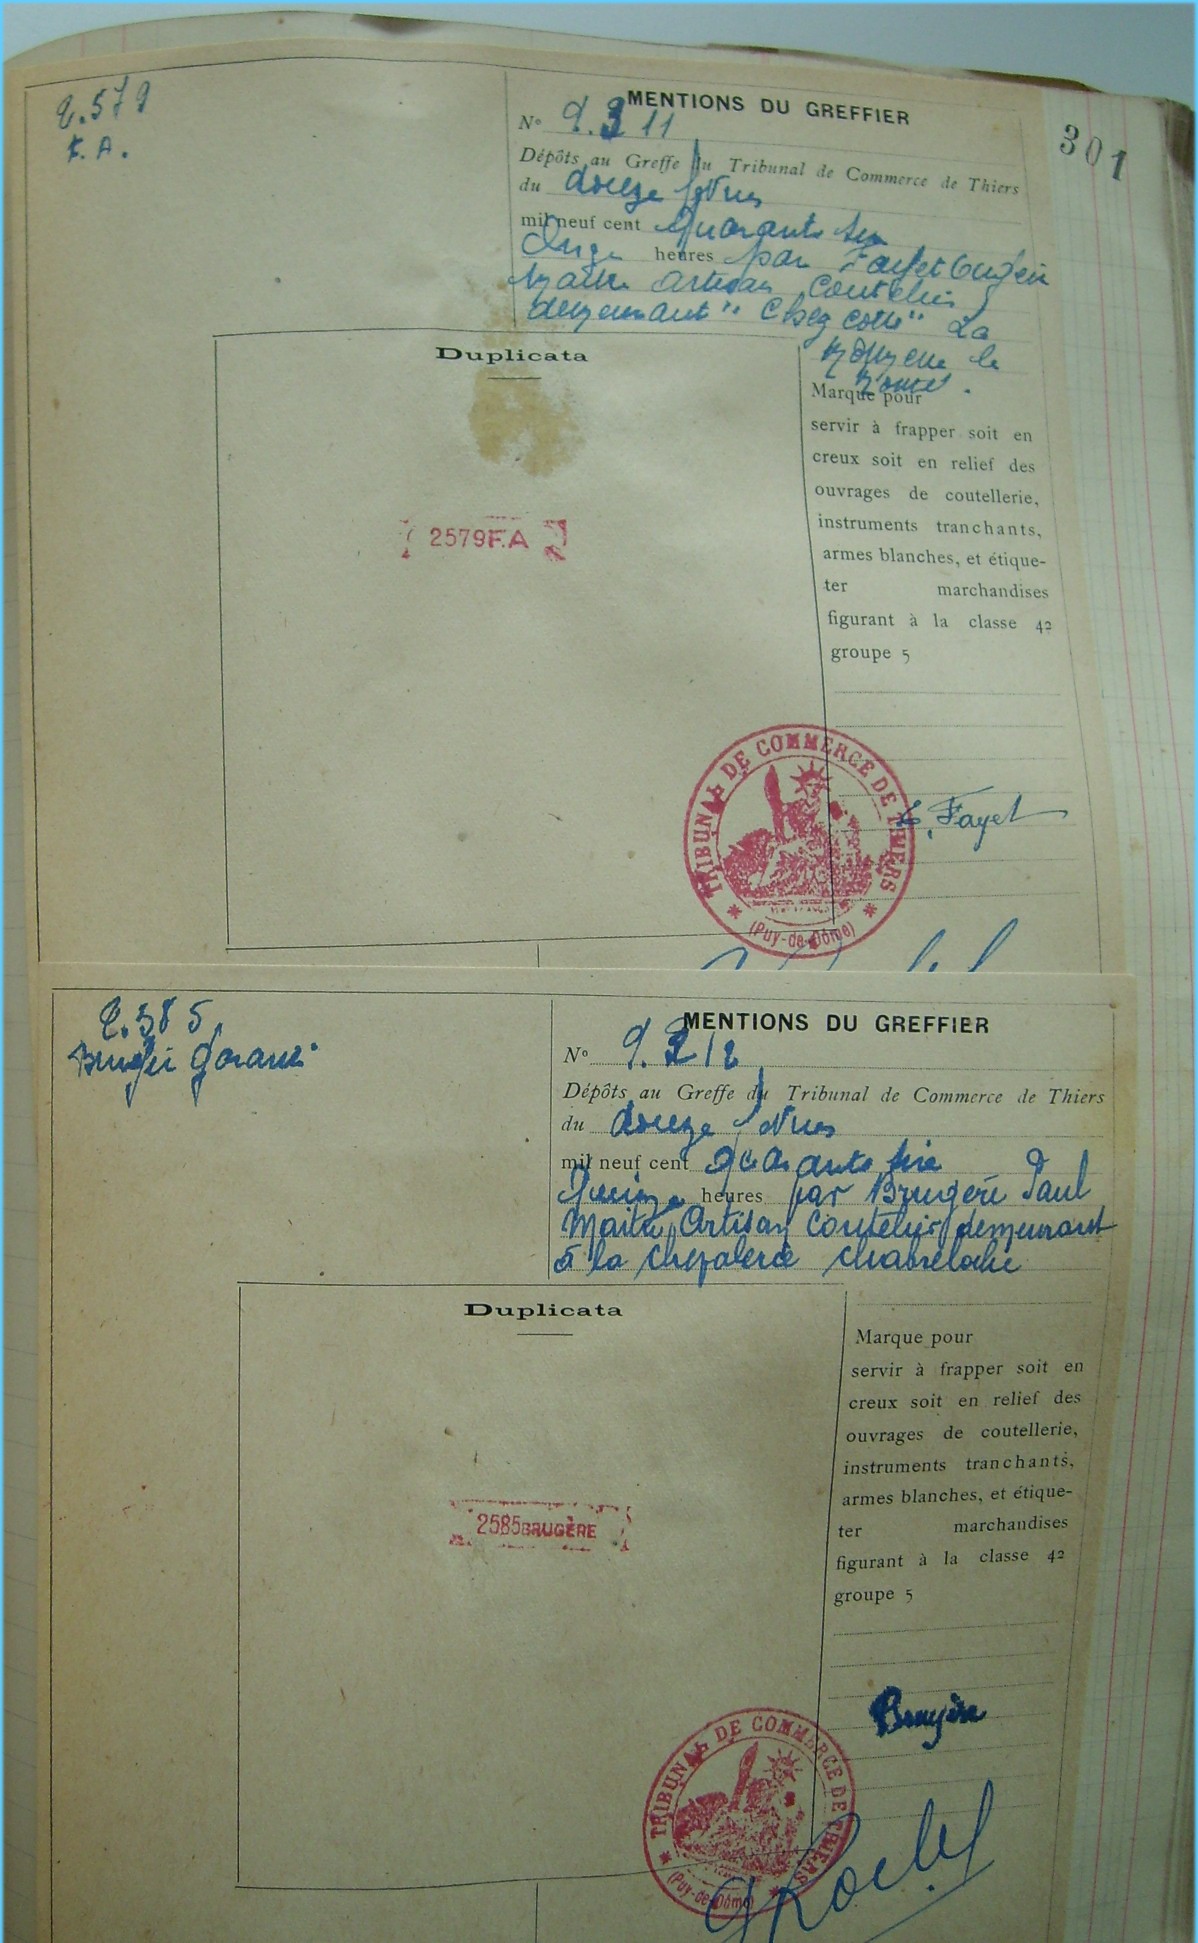 2.579
F.A.
MENTIONS DU GREFFIER
301
N° 9.311
Dépôts au Greffe du Tribunal de Commerce de Thiers
du douze
mil neuf cent Quarante
Onze heures par Fayet
Maitre Artisan Coutelier
demeurant " Chez " La
le
Duplicata
Marque pour
servir à frapper soit en
creux soit en relief des
ouvrages de coutellerie,
instruments tranchants,
armes blanches, et étique-
ter marchandises
figurant à la classe 42
groupe 5
2579F.A
TRIBUNAL DE COMMERCE DE THIERS
(Puy-de-Dôme)
Fayet
2.585
MENTIONS DU GREFFIER
N° 9.312
Dépôts au Greffe du Tribunal de Commerce de Thiers
du douze
mil neuf cent quarante
heures par Brugère Paul
Maitre Artisan Coutelier demeurant
à la Chabreloche
Duplicata
Marque pour
servir à frapper soit en
creux soit en relief des
ouvrages de coutellerie,
instruments tranchants,
armes blanches, et étique-
ter marchandises
figurant à la classe 42
groupe 5
2585BRUGÈRE
Brugère
TRIBUNAL DE COMMERCE DE THIERS
(Puy-de-Dôme)